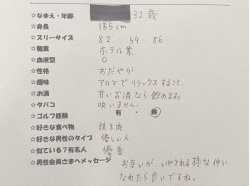 ☆なまえ・年齢 32歳
☆身長 165cm
☆スリーサイズ 82・59・86
☆職業 ホテル業
☆血液型 O
☆性格 おだやか
☆趣味 アロマでリラックスすること。
☆お酒 甘いお酒なら飲めます。
☆タバコ 吸いません。
☆ゴルフ経験 有・無
☆好きな食べ物 焼き肉
☆好きな男性のタイプ 優しい人
☆似ている?有名人 優香
☆男性会員さまへメッセージ お互いが、いやされる様な仲に
なれたら良いですね。